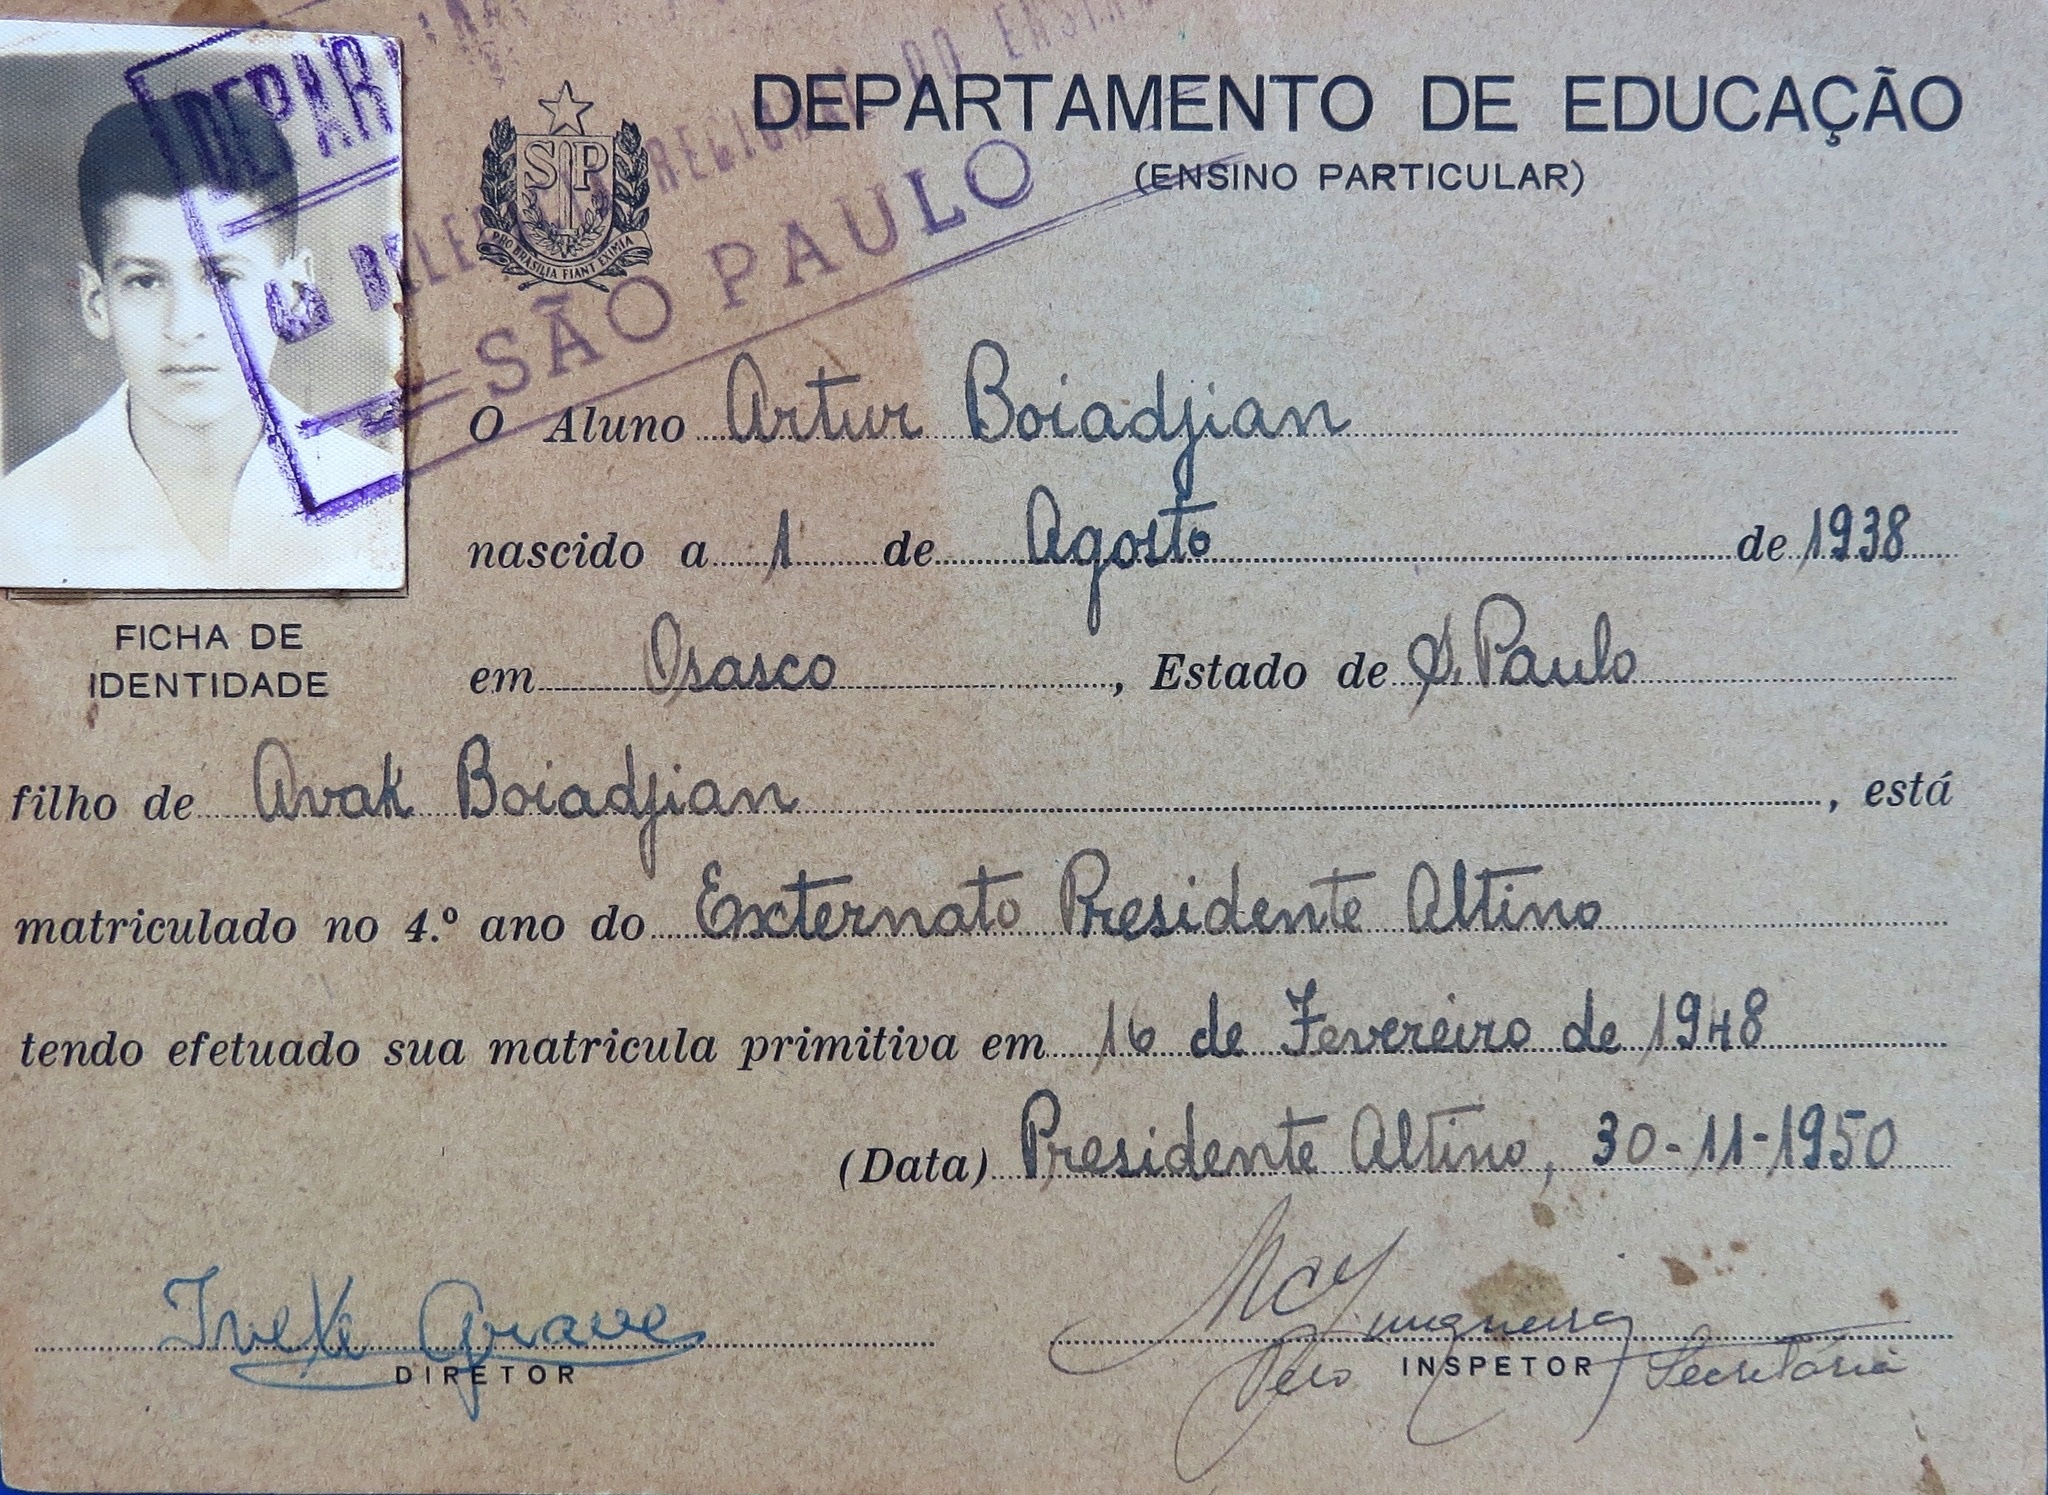 DEPARTAMENTO DE EDUCAÇÃO
(ENSINO PARTICULAR)
SP
PRO BRASILIA FIANT EXIMIA
DEPAR
REGIONAL DO ENSINO
SÃO PAULO
FICHA DE
IDENTIDADE
O Aluno Artur Boiadjian
nascido a 1 de Agosto de 1938
em Osasco, Estado de S. Paulo
filho de Avak Boiadjian, está
matriculado no 4.º ano do Externato Presidente Altino
tendo efetuado sua matricula primitiva em 16 de Fevereiro de 1948
(Data) Presidente Altino, 30-11-1950
DIRETOR
Pelo INSPETOR Secretária